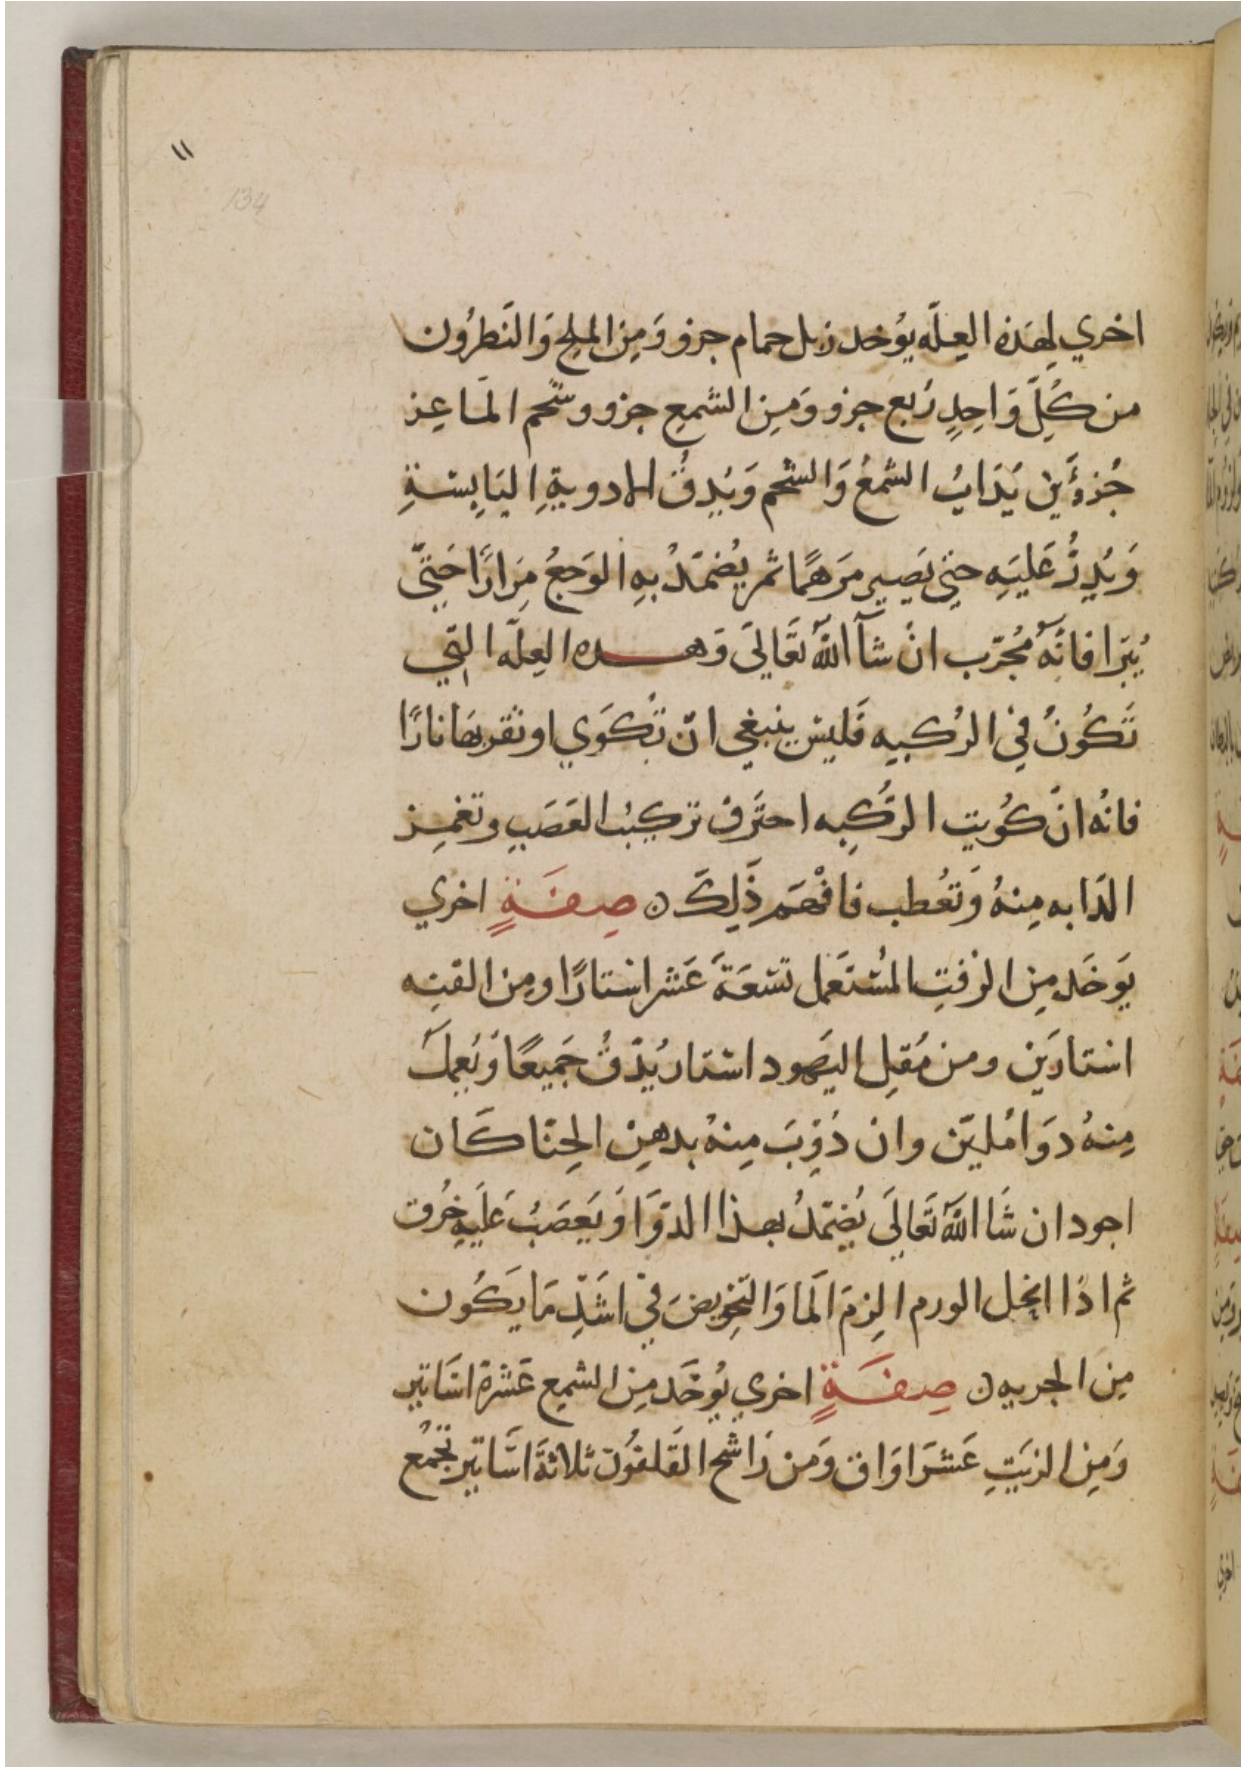 ١١
134
اخري لِهَذه العِلّه يوُخد زبل حمام جزو وَمِن الملح وَالنَطرُون
من كُلِّ وَاحِدٍ رُبع جزو وَمِن الشمعِ جزو وشحم المَاعِز
جُزءَين يُدَابُ الشمعُ وَالشحم وَيُدقُ الادويةِ اليَابِسَةِ
وَيُدرُّ عَليَه حتي يَصِير مَرهمًا ثمر يُضمّدُ بهِ الوَجعُ مِرارًا حَتيّ
يُبَرا فانَهُ مُجرّب انْ شآ اللهُ تعَّالَي وَهـــده العِلّه التِّي
تَكُونُ في الرُكبه فَليسَ ينبغي انّ تُكوَي او تقربهَا نارًا
فانُه انّ كُويت الرُكبِه احترَق تركيبُ العَصَبِ وتغمِز
الدَابه مِنهُ وَتعُطب فافْهَم ذَلِكَ ن صِفَـةٍ اخري
يَوخَد مِن الزفتِ المسُتَعمل تسَعَةَ عَشر استارًا ومِن القنِه
استارَين ومن مُقلِ اليَهود استار يُدّقُ جَميعًا وَيُعملَ
مِنهُ دوَا مُليّن وانْ ذُوِّبَ مِنهُ بدهِنِ الحِنّا كَان
اجود ان شَا اللهُ تَعَالَي يُضمّدُ بهذا الدَوَّا وَيَعصَبُ عَلَيهِ خُرق
ثم اذَا انحل الورم الزِمَ المَا وَالتّخويضَ في اشَدِّ مَا يَكُون
مِنَ الجريه ن صِفَـةٍ اخري يُوخَد مِن الشمع عَشرة اسَّاتير
وَمِن الزيَتِ عَشَر اوَاق وَمن رَاشح القَلفُون ثلاثةَ اسَّاتير تجمُع